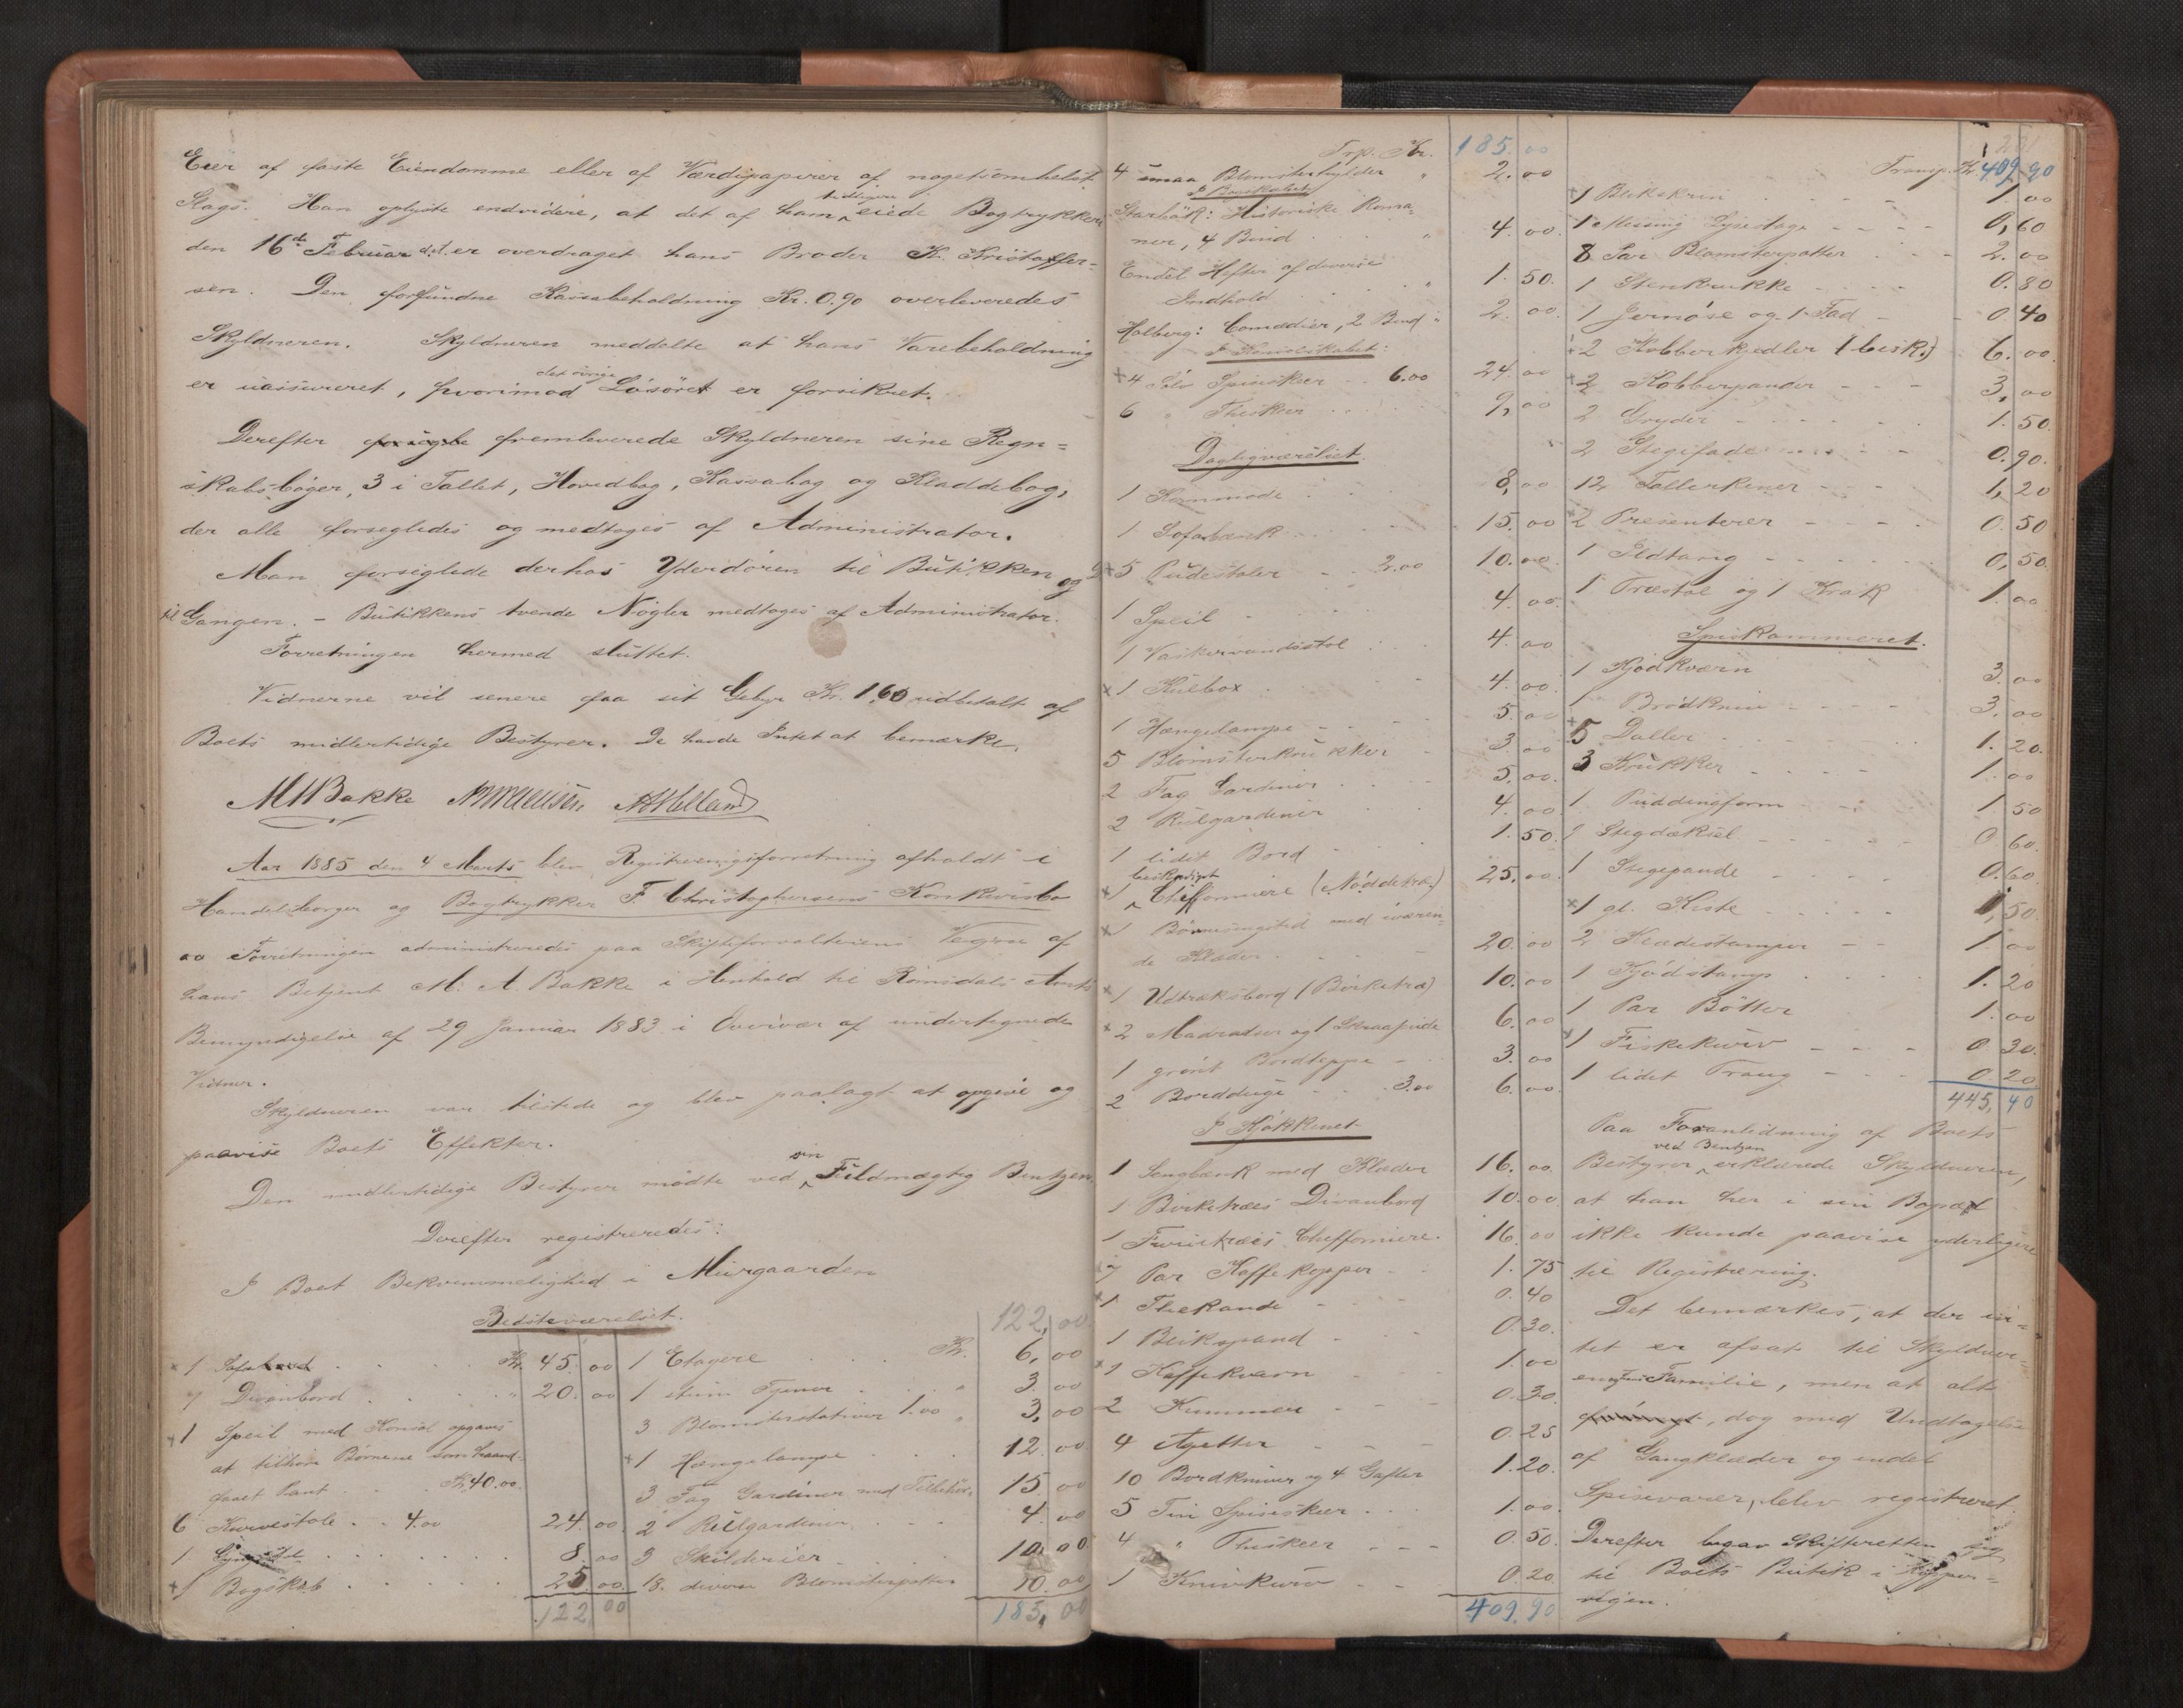 Eier af faste Eiendomme eller af Værdipapirer af nogetsomhelst
Slags. Han oplyste endvidere, at det af ham tidligere eiede Bogtrykkeri
den 16de Februar d.A. er overdraget hans Broder K. Kristoffer-
sen. Den forefundne Kassabeholdning Kr. 0.90 overleveredes
Skyldneren. Skyldneren meddelte at hans Varebeholdning
er uassureret, hvorimod det øvrige Løsøret er forsikret.
Derefter fremleverede Skyldneren sine Regn=
skabsbøger, 3 i Tallet, Hovedbog, Kassabog og Kladdebog,
der alle forsegledes og medtoges af Administrator.
Man forseglede derhos Yderdøren til Butikken og
til Gangen. – Butikkens tvende Nøgler medtoges af Administrator.
Forretningen hermed sluttet.
Vidnerne vil senere faa sit Gebyr Kr. 1,60 udbetalt af
Boets midlertidige Bestyrer. De havde Intet at bemærke.
M A Bakke
Aar 1885 den 4 Marts blev Registreringsforretning afholdt i
Handelsborger og Bogtrykker F Christophersens Konkursbo
og Forretningen administreredes paa Skifteforvalterens Vegne af
hans Betjent M. A. Bakke i Henhold til Romsdals Amts
Bemyndigelse af 29 Januar 1883 i Overvær af undertegnede
Vidner.
Skyldneren var tilstede og blev paalagt at opgive og
paavise Boets Effekter.
Den midlertidige Bestyrer mødte ved sin Fuldmægtig Bentzen.
Derefter registreredes:
I Boet Bekvemmelighed i Murgaarden
Bedsteværelset.
×1 Sofa Kr. 45.00
1 Divanbord " 20.00
×1 Speil med Konsol opgaves
at tilhøre Børnene som haand-
faaet Pant Kr. 40.00
6 Kurvestole 4.00 24.00
1 8.00
×1 Bogskab 25.00
122.00
122,00
1 Etagere Kr. 6,00
1 stum Tjener " 3.00
3 Blomsterstativer 1.00 " 3,00
×1 Hængelampe 12.00
3 Fag Gardiner med Tilbehør 15.00
2 Rulgardiner 4.00
3 Skilderier 10.00
18 diverse Blomsterpotter 10.00
185,00
Trp. Kr. 185.00
4 smaa Blomsterhylder " 2.00
I Bogskabet
Starbäk: Historiske Roma-
ner, 4 Bind " 4.00
Endel Hefter af diverse
Indhold " 1.50
Holberg: Comædier, 2 Bind " 2.00
×4 Sølv Spiseskeer 6.00 24.00
6 " Theskeer 9,00
Dagligværelset.
1 Kommode 8,00
1 Sofabænk 15.00
×5 Pudestoler 2.00 10.00
1 Speil 4.00
1 Vaskervandsstol 4.00
×1 Kulbox 4.00
1 Hængelampe 5.00
5 Blomsterkrukker 3.00
2 Fag Gardiner 5.00
2 Rulgardiner 4.00
1 lidet Bord 1.50
×1 beskadiget Cheffoniere (Nøddetræ) 25.00
×1 Børnesengsted med iværen-
de Klæder 20.00
×1 Udtræksbord (Birketræ) 10.00
×2 Madradser og 1 Skraapude 6.00
1 grønt Bordteppe 3.00
2 Bordduge 3.00 6.00
I Kjøkkenet
1 Sengbænk med Klæder 16.00
1 Birketræes Divanbord 10.00
1 Furutræes Cheffoniere 16.00
×7 Par Kaffekopper 1.75
×1 Thekande 0.40
1 Blikspand 0.30
×1 Kaffekværn 1.00
2 Kummer 0.30
4 Asjetter 0.25
10 Bordknive og 4 Gafler 1.20
5 Tin Spiseskeer 1.00
4 " Theskeer 0.50
1 Knivkurv 0.20
409.90
Transp. Kr. 409.90
×1 Blikskrin 1.00
1 Messing Lysestage 0,60
8 Par Blomsterpotter 2.00
1 Stenkrukke 0.80
1 Jernøse og 1 Fad 0.40
×2 Kobberkjedler (besk.) 6.00
×2 Kobberpander 3,00
2 Gryder 1.50
2 Stegefade 0.90
12 Tallerkener 1,20
×2 Presenterer 0.50
1 Ildtang 0,50
1 Træstol og 1 Krak 1.00
Spiskammeret.
1 Kjødkværn 3.00
1 Brødkniv 3.00
×5 Daller 1.20
3 Krukker 1.00
1 Puddingform 1.50
1 Stegdæksel 0.60
1 Stegepande 0.60
×1 gl. Kiste 1,50
2 Klædestamper 1.00
1 Kjødstamp 1.20
1 Par Bøtter 1.00
×1 Fiskekurv 0.30
1 lidet Traug 0.20
445,40
Paa Foranledning af Boets
Bestyrer ved Bentzen erklærede Skyldneren,
at han her i sin Bopæl
ikke kunde paavise yderligere
til Registrering.
Det bemærkes, at der in-
tet er afsat til Skyldner-
en Familie, men at alt
, dog med Undtagelse
af Gangklæder og endel
Spisevarer, blev registreret.
Derefter begav Skifteretten sig
til Boets Butik i
vigen.